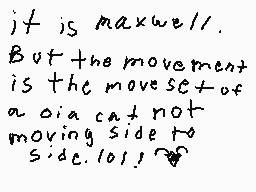 it is maxwell.
But the movement
is the moveset of
a oia cat not
moving side to
side. lol!